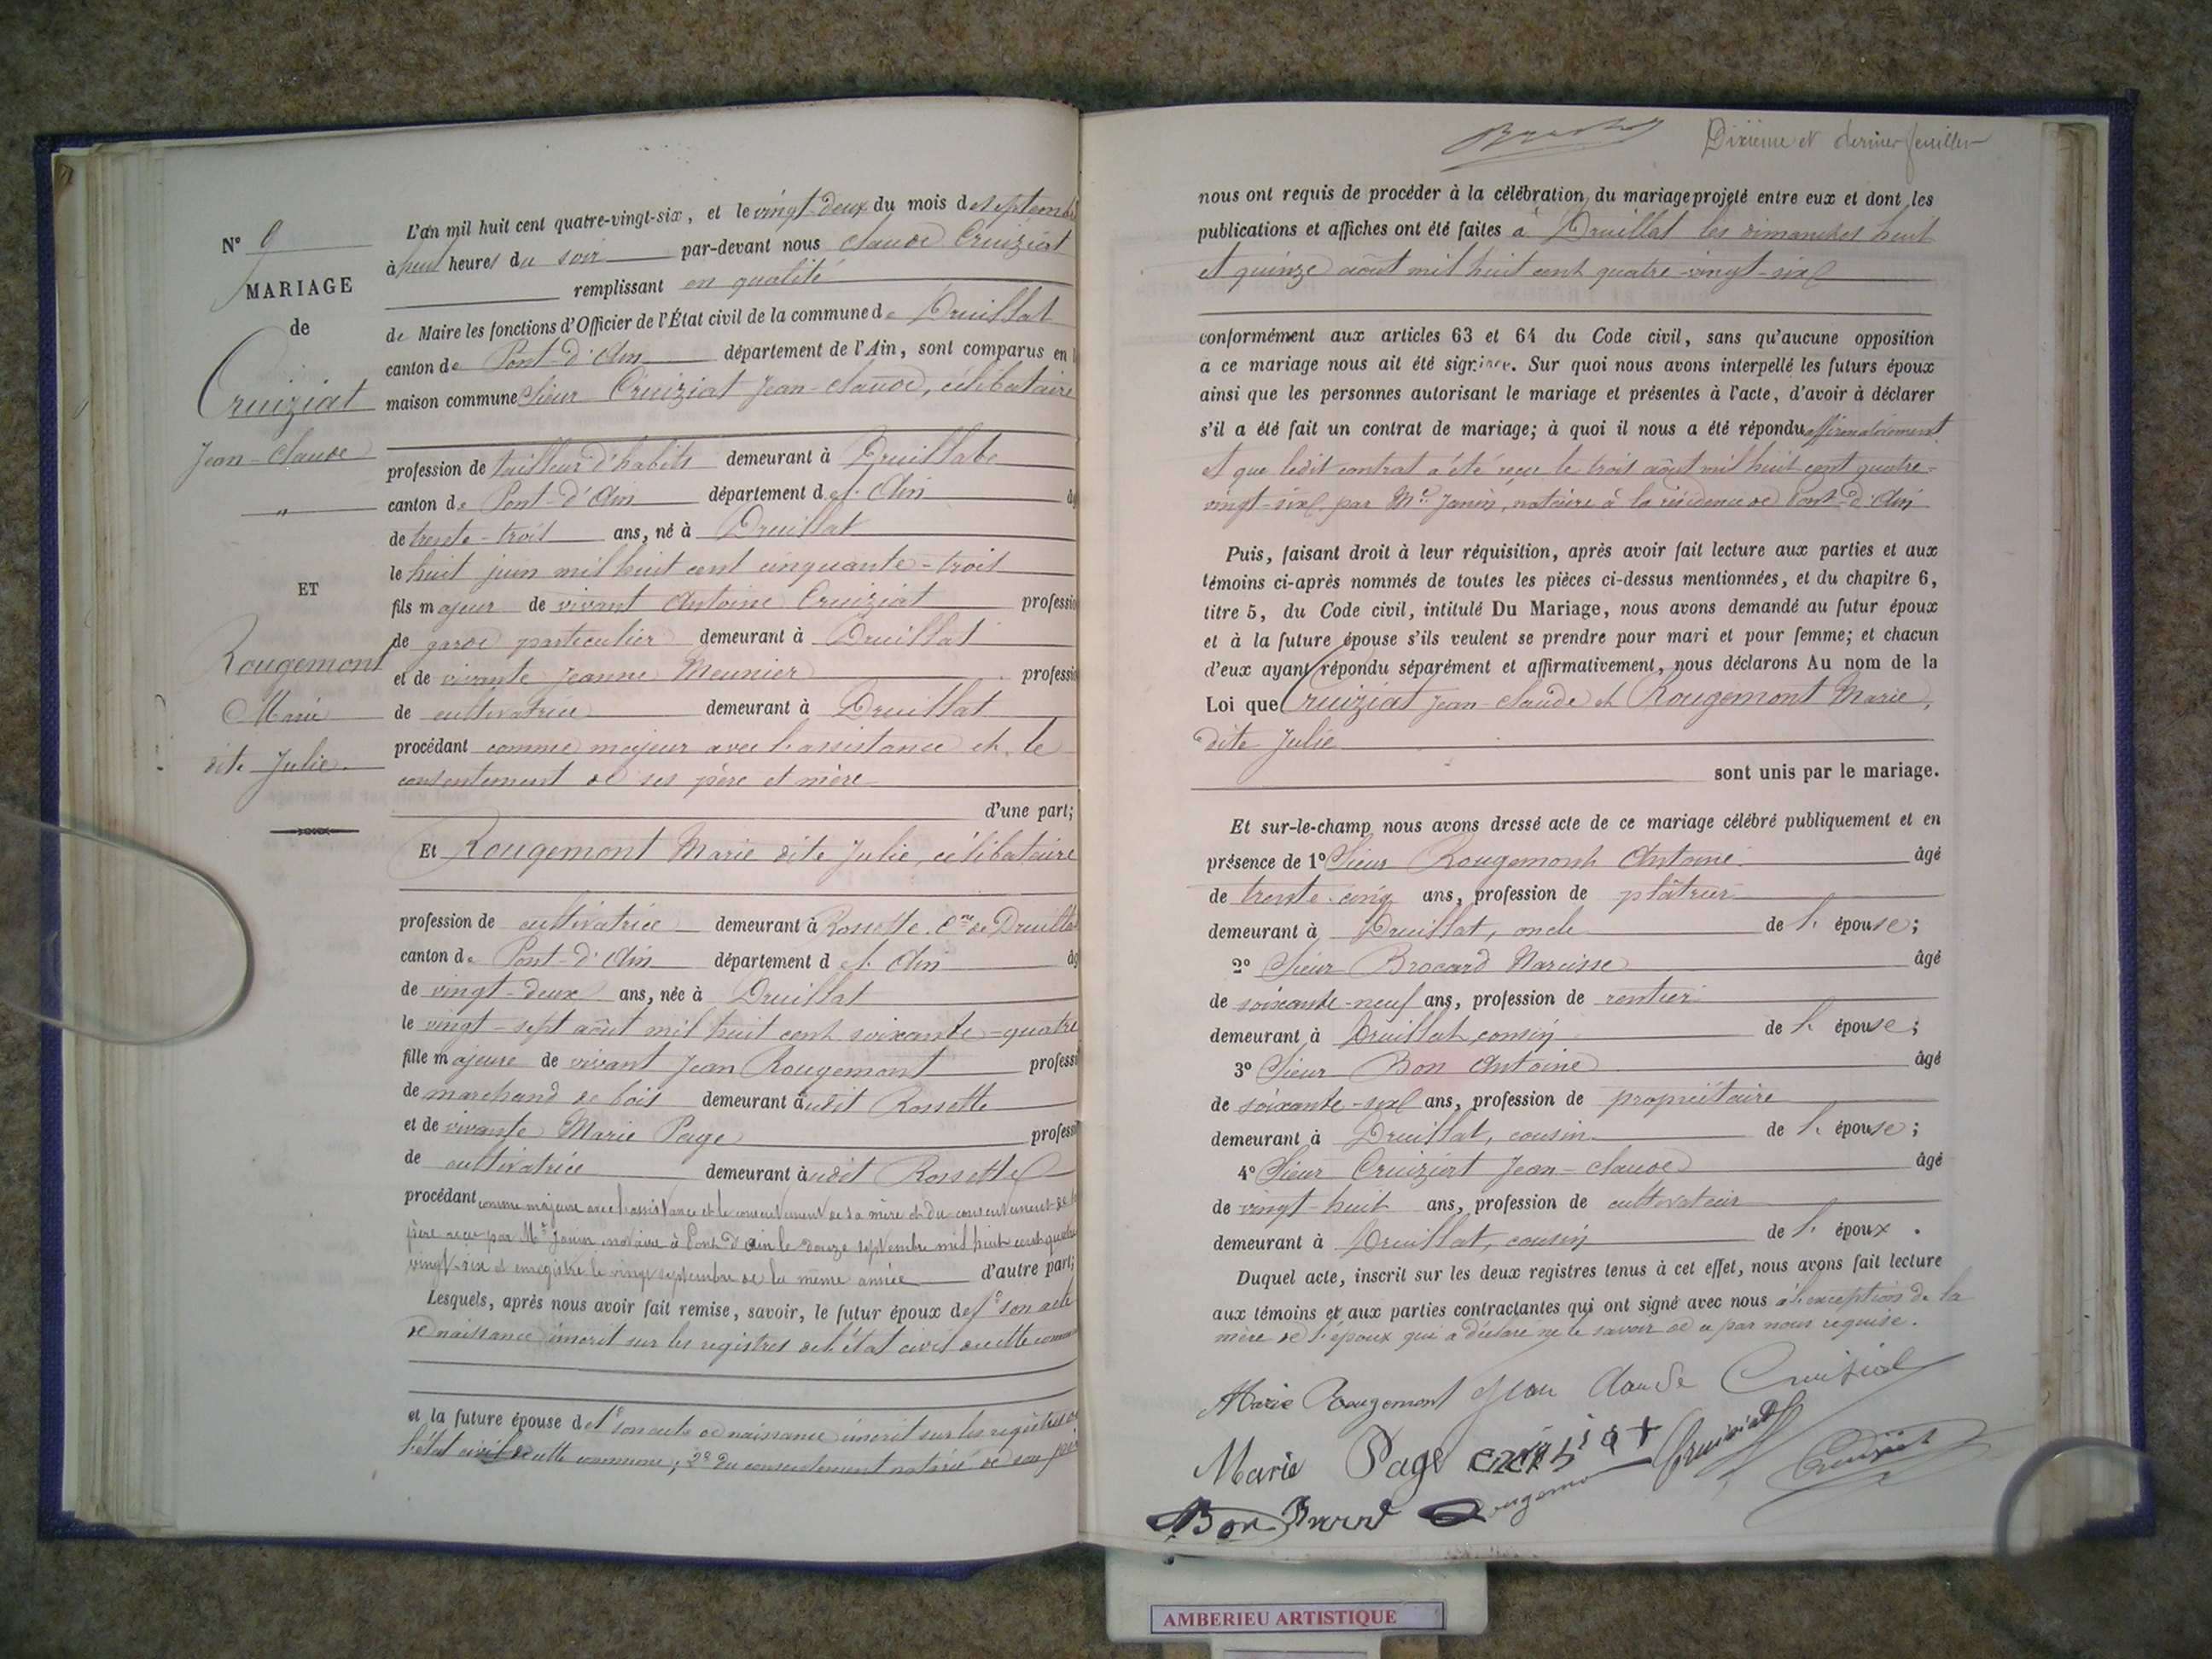 N° 9
MARIAGE
de
Cruiziat
Jean-Claude
"
ET
Rougemont
Marie
dite Julie
L'an mil huit cent quatre-vingt-six, et le vingt-deux du mois de septembre
à huit heures du soir par-devant nous Claude Cruiziat
remplissant en qualité
de Maire les fonctions d'Officier de l'État civil de la commune de Druillat
canton de Pont-d'Ain département de l'Ain, sont comparus en
maison commune Sieur Cruiziat Jean-Claude, célibataire
profession de tailleur d'habits demeurant à Druillat
canton de Pont-d'Ain département de l'Ain
de trente-trois ans, né à Druillat
le huit juin mil huit cent cinquante-trois
fils majeur de vivant Antoine Cruiziat profession
de garde particulier demeurant à Druillat
et de vivante Jeanne Meunier profession
de cultivatrice demeurant à Druillat
procédant comme majeur avec l'assistance et le
consentement de ses père et mère
d'une part;
Et Rougemont Marie dite Julie, célibataire
profession de cultivatrice demeurant à Rossette Cne de Druillat
canton de Pont-d'Ain département de l'Ain âg
de vingt-deux ans, née à Druillat
le vingt-sept août mil huit cent soixante-quatre
fille majeure de vivant Jean Rougemont profession
de marchand de bois demeurant audit Rossette
et de vivante Marie Page profession
de cultivatrice demeurant audit Rossette
procédant comme majeure avec l'assistance et le consentement de sa mère et du consentement de
père reçu par Me Janin notaire à Pont d'Ain le douze septembre mil huit cent quatre
vingt-six et enregistré le vingt septembre de la même année d'autre part;
Lesquels, après nous avoir fait remise, savoir, le futur époux de 1° son acte
de naissance inscrit sur les registres de l'état civil de cette commune
et la future épouse de 1° son acte de naissance inscrit sur les registres de
l'état civil de cette commune; 2° du consentement notarié de son père
Dixième et dernier feuillet
nous ont requis de procéder à la célébration du mariage projeté entre eux et dont les
publications et affiches ont été faites à Druillat les dimanches huit
et quinze août mil huit cent quatre-vingt-six
conformément aux articles 63 et 64 du Code civil, sans qu'aucune opposition
a ce mariage nous ait été signifiée. Sur quoi nous avons interpellé les futurs époux
ainsi que les personnes autorisant le mariage et présentes à l'acte, d'avoir à déclarer
s'il a été fait un contrat de mariage; à quoi il nous a été répondu affirmativement
et que ledit contrat a été reçu le trois août mil huit cent quatre-
vingt-six par Me Janin, notaire à la résidence de Pont-d'Ain
Puis, faisant droit à leur réquisition, après avoir fait lecture aux parties et aux
témoins ci-après nommés de toutes les pièces ci-dessus mentionnées, et du chapitre 6,
titre 5, du Code civil, intitulé Du Mariage, nous avons demandé au futur époux
et à la future épouse s'ils veulent se prendre pour mari et pour femme; et chacun
d'eux ayant répondu séparément et affirmativement, nous déclarons Au nom de la
Loi que Cruiziat Jean-Claude et Rougemont Marie,
dite Julie
sont unis par le mariage.
Et sur-le-champ nous avons dressé acte de ce mariage célébré publiquement et en
présence de 1° Sieur Rougemont Antoine âgé
de trente-cinq ans, profession de plâtrier
demeurant à Druillat, oncle de l'épouse;
2° Sieur Brocard Narcisse âgé
de soixante-neuf ans, profession de rentier
demeurant à Druillat, cousin de l'épouse;
3° Sieur Bon Antoine âgé
de soixante-six ans, profession de propriétaire
demeurant à Druillat, cousin de l'épouse;
4° Sieur Cruiziat Jean-Claude âgé
de vingt-huit ans, profession de cultivateur
demeurant à Druillat, cousin de l'époux.
Duquel acte, inscrit sur les deux registres tenus à cet effet, nous avons fait lecture
aux témoins et aux parties contractantes qui ont signé avec nous à l'exception de la
mère de l'époux qui a déclaré ne le savoir de ce par nous requise.
Marie Rougemont Jean Claude Cruisiat
Marie Page Cruiziat Cruiziat
Bon Rougemont
AMBERIEU ARTISTIQUE